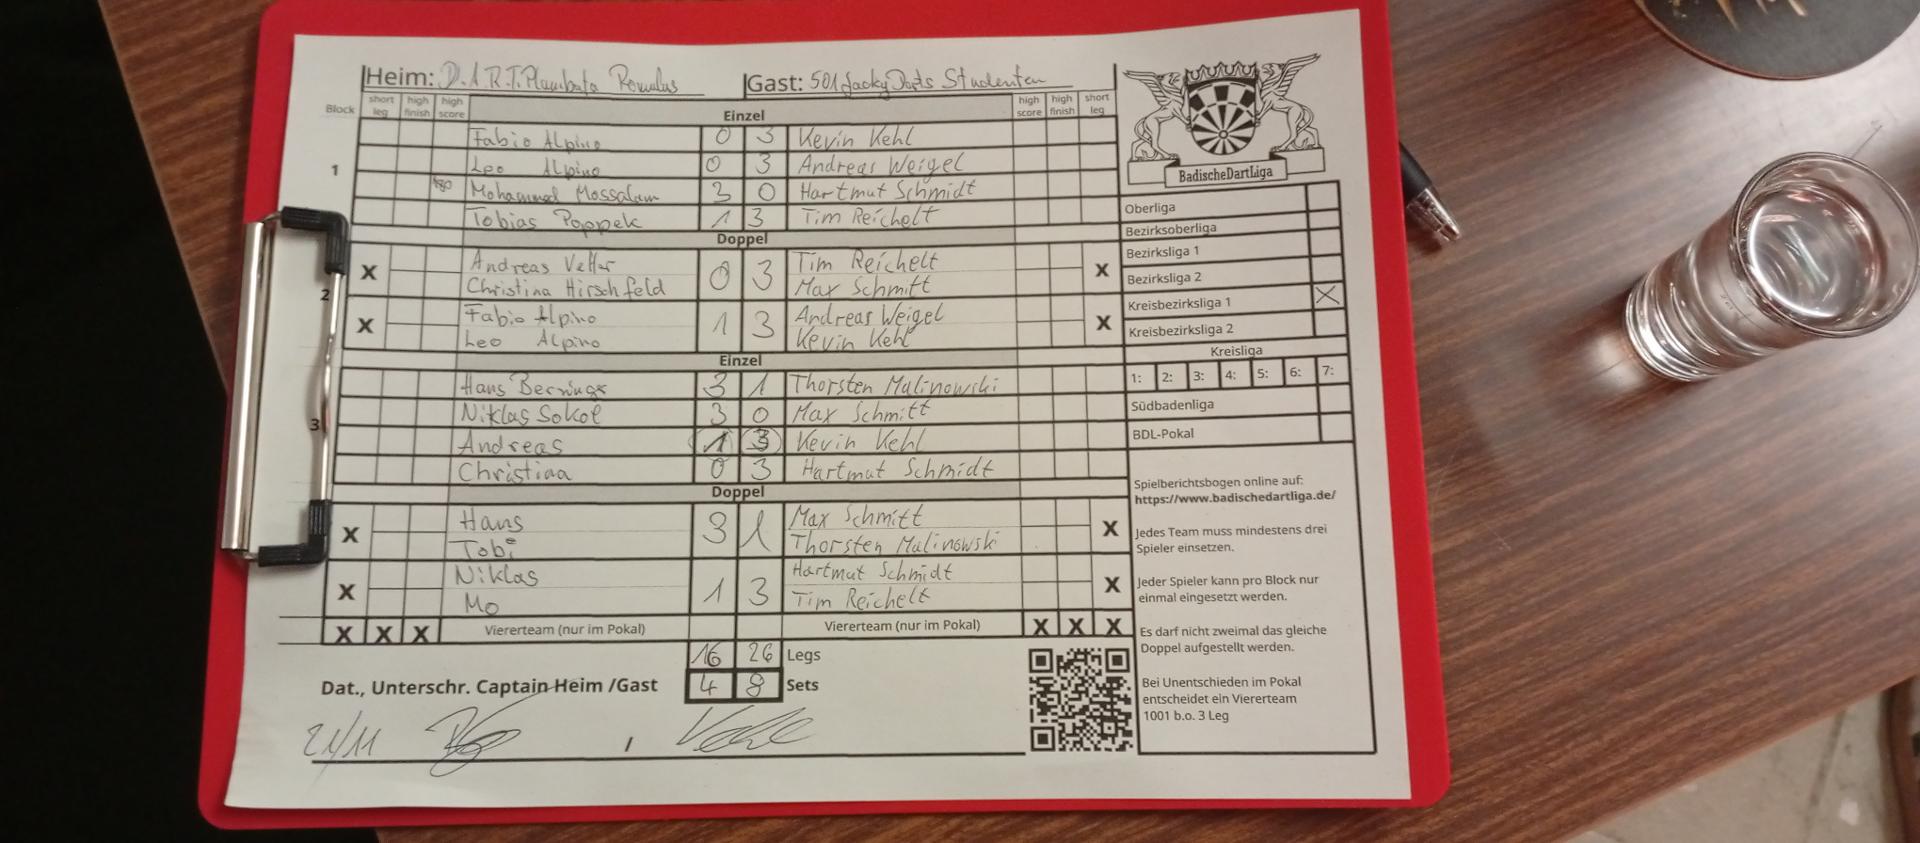 Heim: D.A.R.T. Plumbata Romulus Gast: 501 Jacky Darts Studenten
Block short leg high finish high score Einzel high score high finish short leg
1
Fabio Alpino 0 3 Kevin Kehl
Leo Alpino 0 3 Andreas Weigel
180 Mohammed Mossalam 3 0 Hartmut Schmidt
Tobias Poppek 1 3 Tim Reichelt
Doppel
2
X Andreas Vetter 0 3 Tim Reichelt X
Christina Hirschfeld Max Schmitt
X Fabio Alpino 1 3 Andreas Weigel X
Leo Alpino Kevin Kehl
Einzel
3
Hans 3 1 Thorsten Malinowski
Niklas Sokol 3 0 Max Schmitt
Andreas 1 3 Kevin Kehl
Christina 0 3 Hartmut Schmidt
Doppel
X Hans 3 1 Max Schmitt X
Tobi Thorsten Malinowski
X Niklas 1 3 Hartmut Schmidt X
Mo Tim Reichelt
X X X Viererteam (nur im Pokal) Viererteam (nur im Pokal) X X X
16 26 Legs
Dat., Unterschr. Captain Heim /Gast 4 8 Sets
21/11 /
BadischeDartLiga
Oberliga
Bezirksoberliga
Bezirksliga 1
Bezirksliga 2
Kreisbezirksliga 1 X
Kreisbezirksliga 2
Kreisliga
1: 2: 3: 4: 5: 6: 7:
Südbadenliga
BDL-Pokal
Spielberichtsbogen online auf:
https://www.badischedartliga.de/
Jedes Team muss mindestens drei
Spieler einsetzen.
Jeder Spieler kann pro Block nur
einmal eingesetzt werden.
Es darf nicht zweimal das gleiche
Doppel aufgestellt werden.
Bei Unentschieden im Pokal
entscheidet ein Viererteam
1001 b.o. 3 Leg